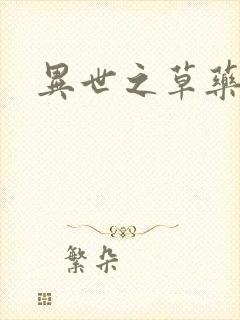 異世之草藥
繁朵